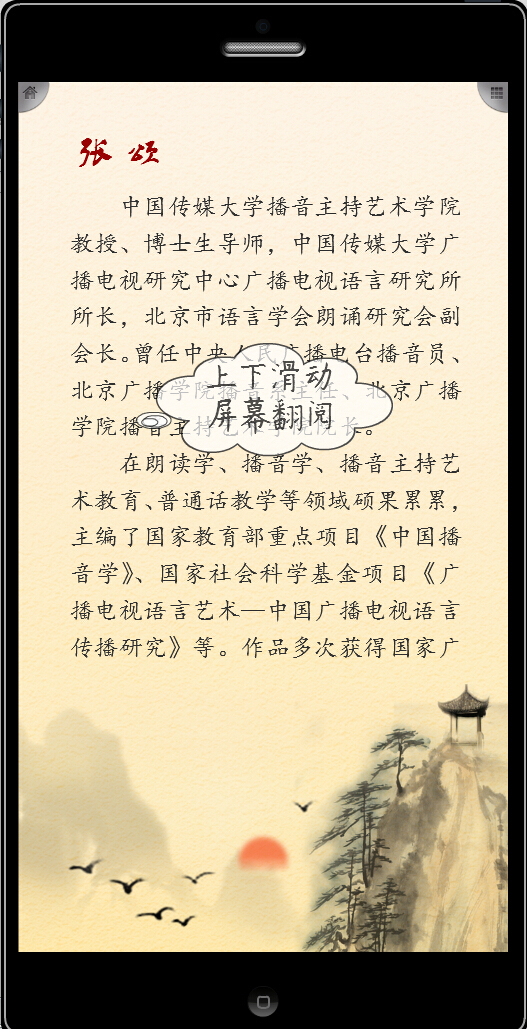 张 颂
中国传媒大学播音主持艺术学院
教授、博士生导师，中国传媒大学广
播电视研究中心广播电视语言研究所
所长，北京市语言学会朗诵研究会副
会长。曾任中央人民广播电台播音员、
北京广播学院播音系主任、北京广播
学院播音主持艺术学院院长。
上下滑动
屏幕翻阅
在朗读学、播音学、播音主持艺
术教育、普通话教学等领域硕果累累，
主编了国家教育部重点项目《中国播
音学》、国家社会科学基金项目《广
播电视语言艺术—中国广播电视语言
传播研究》等。作品多次获得国家广